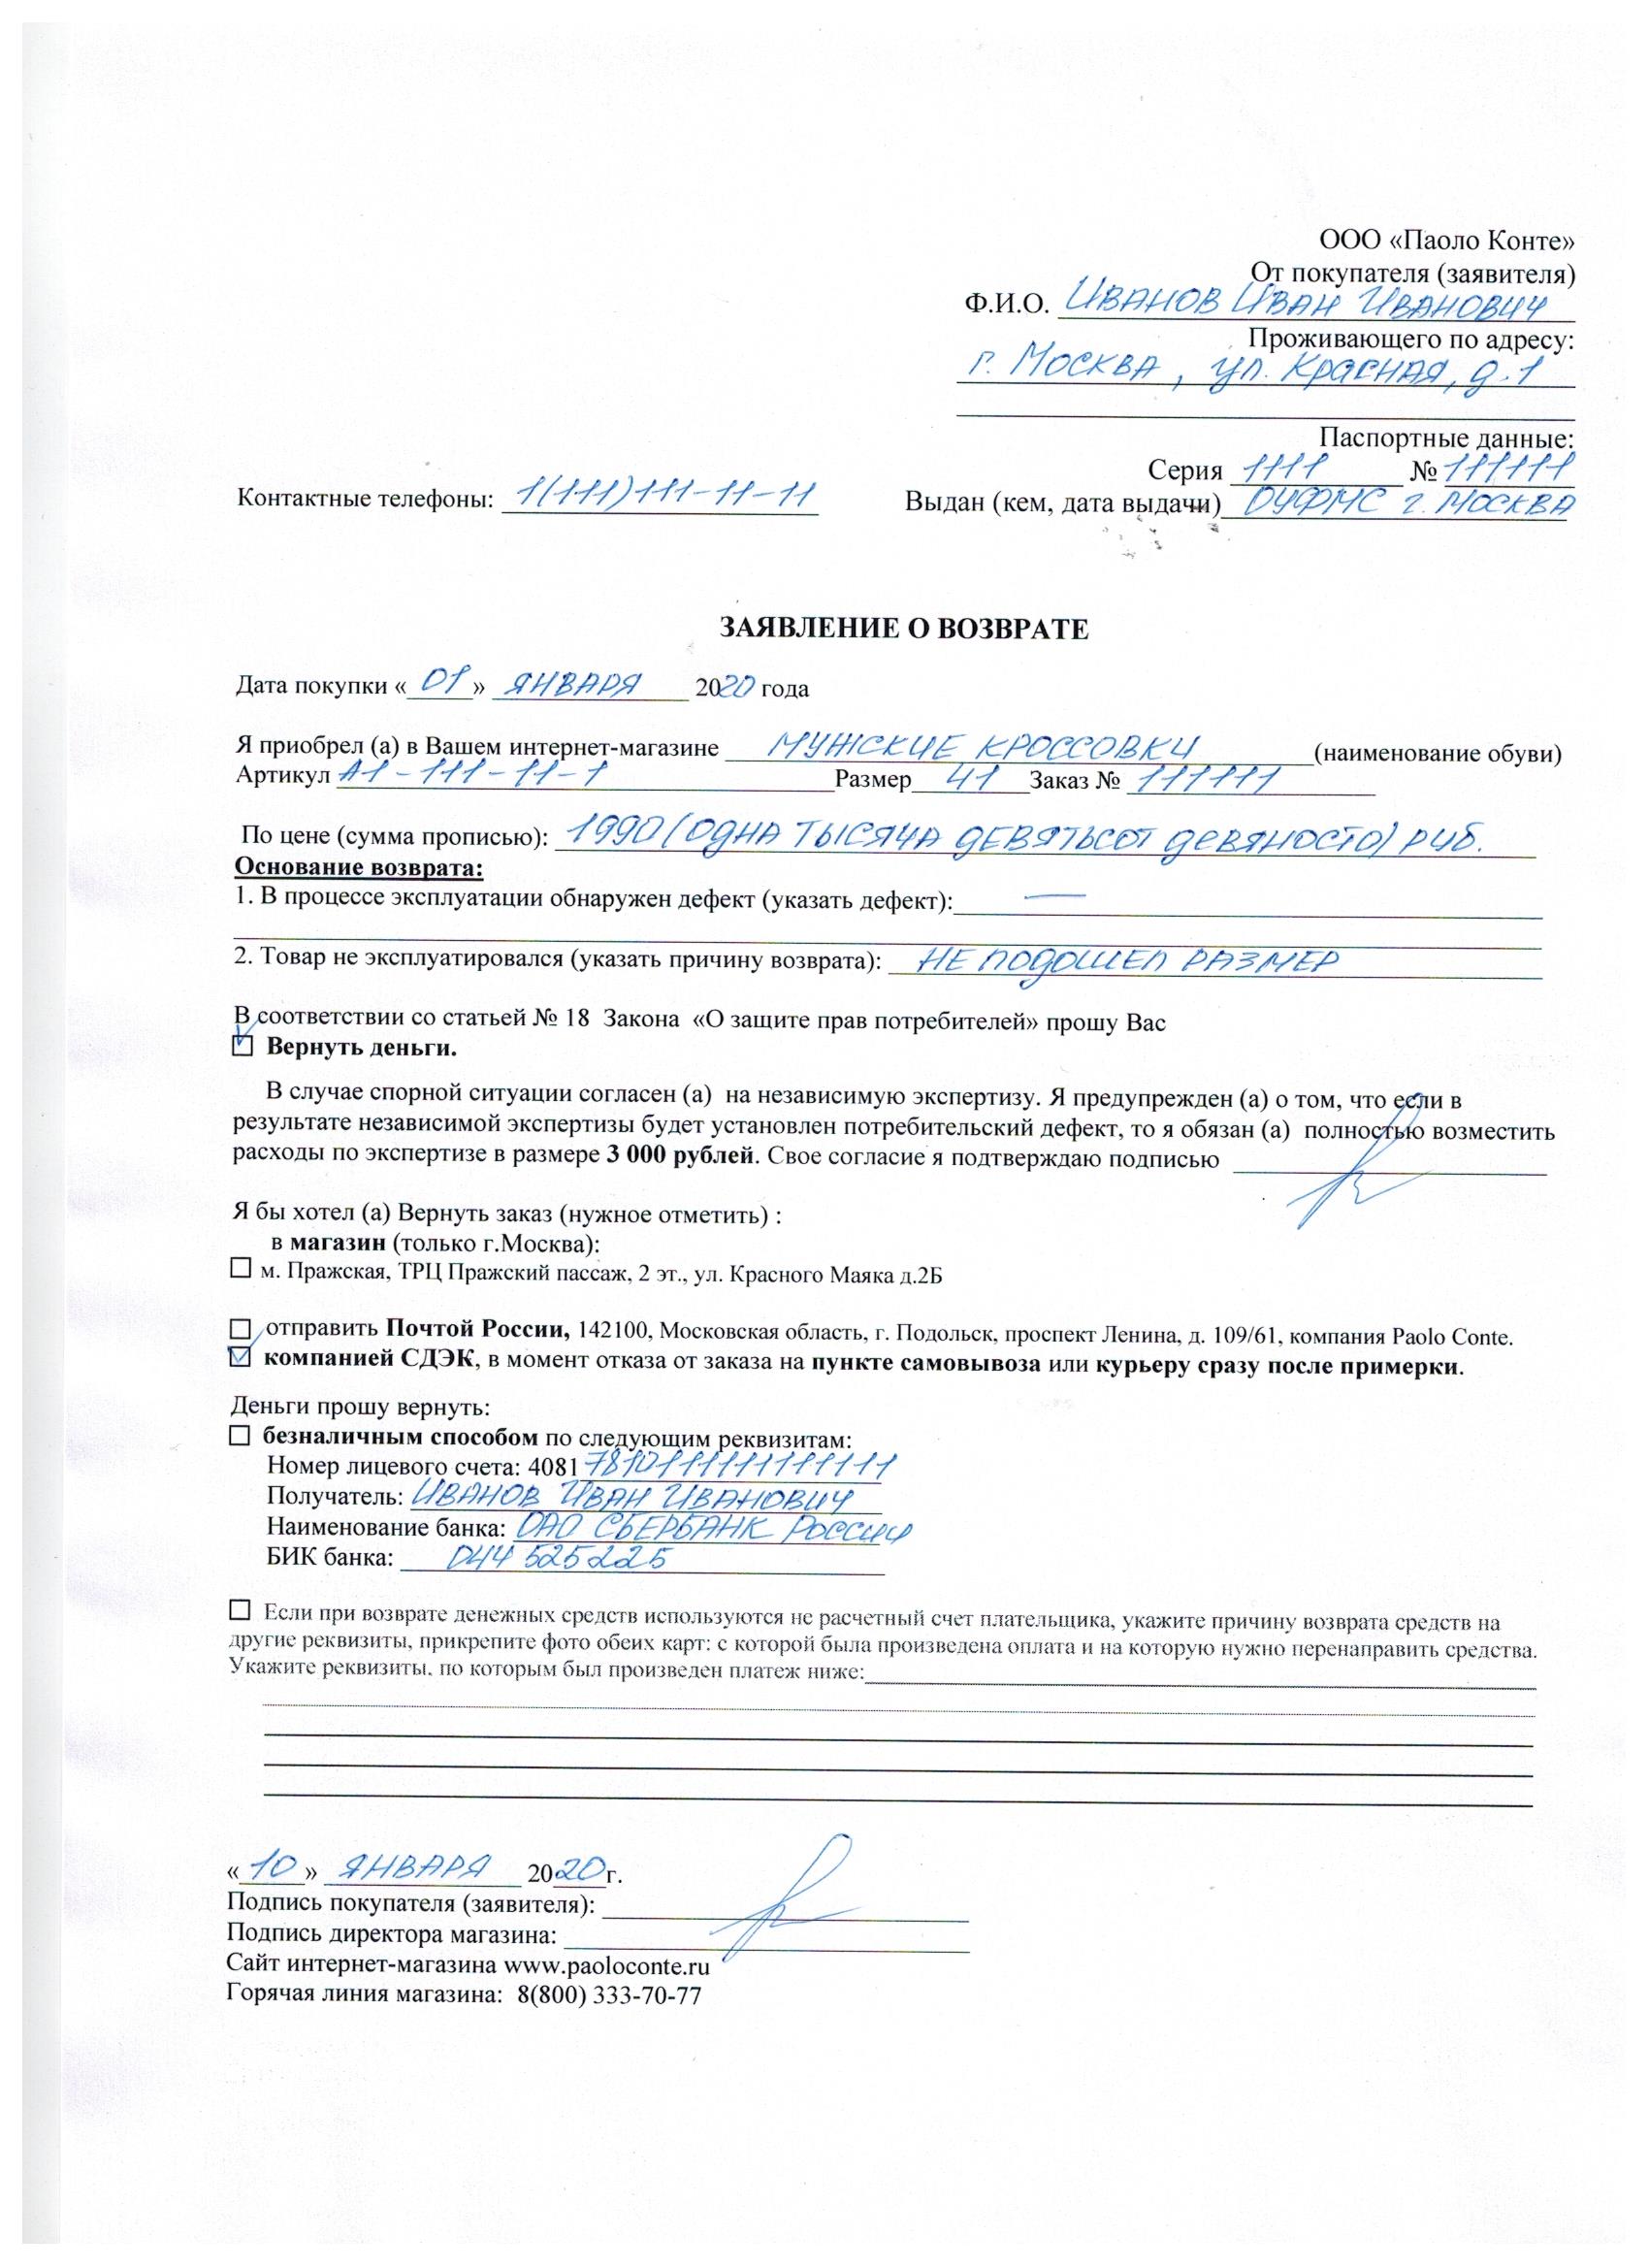 ООО «Паоло Конте»
От покупателя (заявителя)
Ф.И.О. Иванов Иван Иванович
Проживающего по адресу:
г. Москва, ул. Красная, д.1
Паспортные данные:
Серия 1111 № 111111
Контактные телефоны: 1(111)111-11-11 Выдан (кем, дата выдачи) ОУФМС г. Москва
ЗАЯВЛЕНИЕ О ВОЗВРАТЕ
Дата покупки «01» января 2020 года
Я приобрел (а) в Вашем интернет-магазине мужские кроссовки (наименование обуви)
Артикул А1-111-11-1 Размер 41 Заказ № 111111
По цене (сумма прописью): 1990 (одна тысяча девятьсот девяносто) руб.
Основание возврата:
1. В процессе эксплуатации обнаружен дефект (указать дефект): —
2. Товар не эксплуатировался (указать причину возврата): не подошел размер
В соответствии со статьей № 18 Закона «О защите прав потребителей» прошу Вас
Вернуть деньги.
В случае спорной ситуации согласен (а) на независимую экспертизу. Я предупрежден (а) о том, что если в
результате независимой экспертизы будет установлен потребительский дефект, то я обязан (а) полностью возместить
расходы по экспертизе в размере 3 000 рублей. Свое согласие я подтверждаю подписью
Я бы хотел (а) Вернуть заказ (нужное отметить) :
в магазин (только г.Москва):
м. Пражская, ТРЦ Пражский пассаж, 2 эт., ул. Красного Маяка д.2Б
отправить Почтой России, 142100, Московская область, г. Подольск, проспект Ленина, д. 109/61, компания Paolo Conte.
компанией СДЭК, в момент отказа от заказа на пункте самовывоза или курьеру сразу после примерки.
Деньги прошу вернуть:
безналичным способом по следующим реквизитам:
Номер лицевого счета: 4081 7810111111111111
Получатель: Иванов Иван Иванович
Наименование банка: ОАО Сбербанк России
БИК банка: 044525225
Если при возврате денежных средств используются не расчетный счет плательщика, укажите причину возврата средств на
другие реквизиты, прикрепите фото обеих карт: с которой была произведена оплата и на которую нужно перенаправить средства.
Укажите реквизиты, по которым был произведен платеж ниже:
«10» января 2020г.
Подпись покупателя (заявителя):
Подпись директора магазина:
Сайт интернет-магазина www.paoloconte.ru
Горячая линия магазина: 8(800) 333-70-77